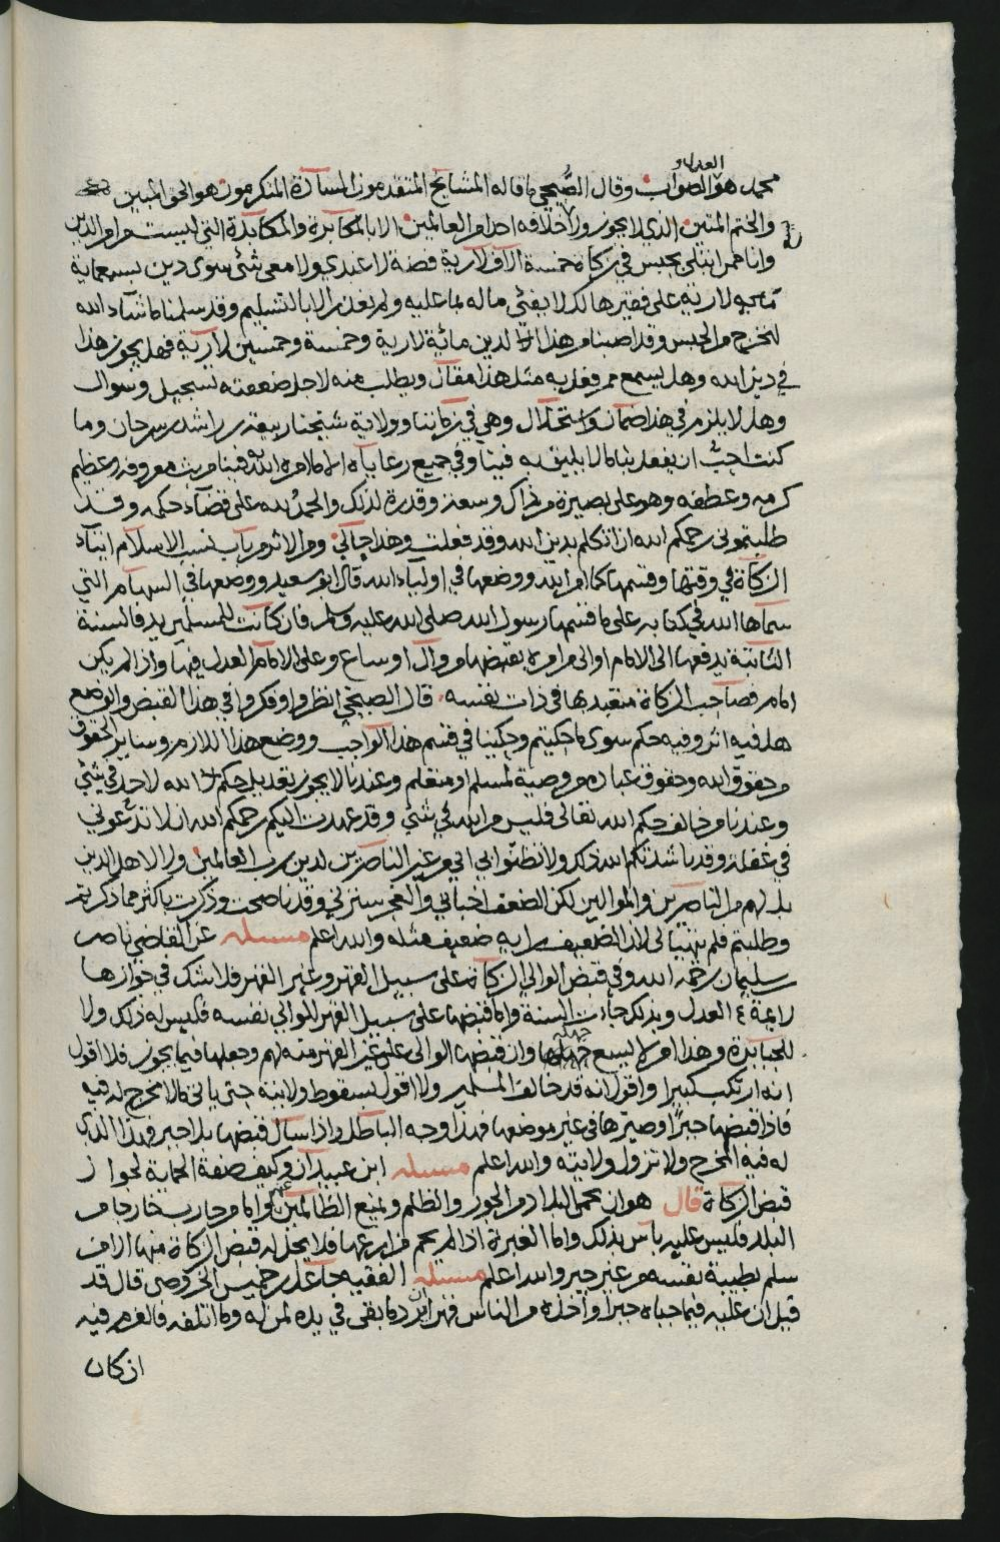 العدل و
محمد هو الصواب وقال الصبحي ما قاله المشايخ المتقدمون السادة المكرمون هو الحق المبين
والختم المتين الذي لا يجوز ولا خلافه احد من العالمين الا بالمكابرة والمكابدة التي ليست من امر الدين
وانا ممن ابتلي بحبس في زكاة خمسة الاف لارية فضة لا عندي ولا معي شيء سوى دين بسبعماية
لارية على فقير هالك لا يفي ماله بما عليه ولم نعذر الا بالتسليم وقد سلمنا ما شاء الله
لنخرج من الحبس وقد اصبنا من هذا الدين مائية لارية وخمسة وخمسين لارية فهل يجوز هذا
في دين الله وهل يسمع ممن فعل به مثل هذا مقال ويطلب منه لاجل ضعفته تسجيل وسوال
وهل لا يلزم في هذا ضمان واستحلال وهي في زماننا وولاية شيخنا ربيعة بن راشد بن سرحان وما
كنت احب ان يفعل بنا ما لا يليق به فينا وفي جميع رعاياه الا ما امره الله فينا من بث معروفه وعظيم
كرمه وعطفه وهو على بصيرة من ذاك وسعة وقدرة لذلك والحمد لله على قضاء حكمه وقد
طلبتموني رحمكم الله ان اتكلم بدين الله وقد فعلت وهذا جهالي ومن الاثر من باب نسب الاسلام ايتاء
الزكاة في وقتها وقسمها كما امر الله ووضعها في اولياء الله قال ابو سعيد ووضعها في السهام التي
سماها الله في كتابه على ما قسمها رسول الله صلى الله عليه وسلم فان كانت للمسلمين يد فالسنة
الثابتة يدفعها الى الامام او الى من امره بقبضها من وال او ساع وعلى الامام العدل فيها واذا لم يكن
امام فصاحب الزكاة متعبد بها في ذات نفسه قال الصبحي انظروا وفكروا في هذا القبض والوضع
هل فيه اثر وفيه حكم سوى ما حكيتم وحكينا في قسم هذا الواجب ووضع هذا اللازم وساير الحقوق
من حقوق الله وحقوق عباده من وصية لمسلم او متعلم وعندنا لا يجوز تعديل حكم الله لاحد في شيء
وعندنا من خالف حكم الله تعالى فليس من الله في شيء وقد عهدت اليكم رحمكم الله ان لا تدعوني
في غفلة وقد ناشدتكم الله ذلك ولا تظنوا بي اني من غير الناصرين لدين رب العالمين ولا لاهل الدين
بل لهم من الناصرين والموالين لكن الضعف اخباني والعجز سترني وقد ناصحت وذكرت باكثر مما ذكرتم
وطلبتم فلم يتهيا لي لان الضعيف رايه ضعيف مثله والله اعلم مسئلة عن القاضي ناصر بن
سليمان رحمه الله وفي قبض الوالي الزكاة على سبيل القهر وغير القهر فلا شك في جوازها
لايمة العدل وبذلك جاءت السنة واما قبضها على سبيل القهر للوالي نفسه فليس له ذلك ولا
للجبابرة وهذا امر لا يسع جهله وان قبضها الوالي على غير القهر منه لهم وجعلها فيما يجوز فلا اقول
انه ارتكب كبيرا واقول انه قد خالف المسلمين ولا اقول بسقوط ولايته حتى ياتي ما لا مخرج له فيه
فاذا قبضها جبرًا وصيرها في غير موضعها فهذا وجه الباطل واذا سال قبضها بلا جبر فهذا الذي
له فيه المخرج ولا تزول ولايته والله اعلم مسئلة ابن عبيدان وكيف صفة الحماية لجواز
قبض الزكاة قال هو ان يحمي البلاد من الجور والظلم ويمنع الظالمين عنها واما من حارب خارجا من
البلد فليس عليه باس بذلك واما القرية اذا لم يحم مزارعها فلا يحل له قبض الزكاة منها الا من
سلم بطيبة نفسه من غير جبر والله اعلم مسئلة الفقيه جاعد بن خميس الخروصي قال قد
قيل ان عليه فيما جباه جبرا واخذه من الناس قهرا ان رد ما بقي في يده لمن له وما اتلفه فالغرم فيه
ان كان